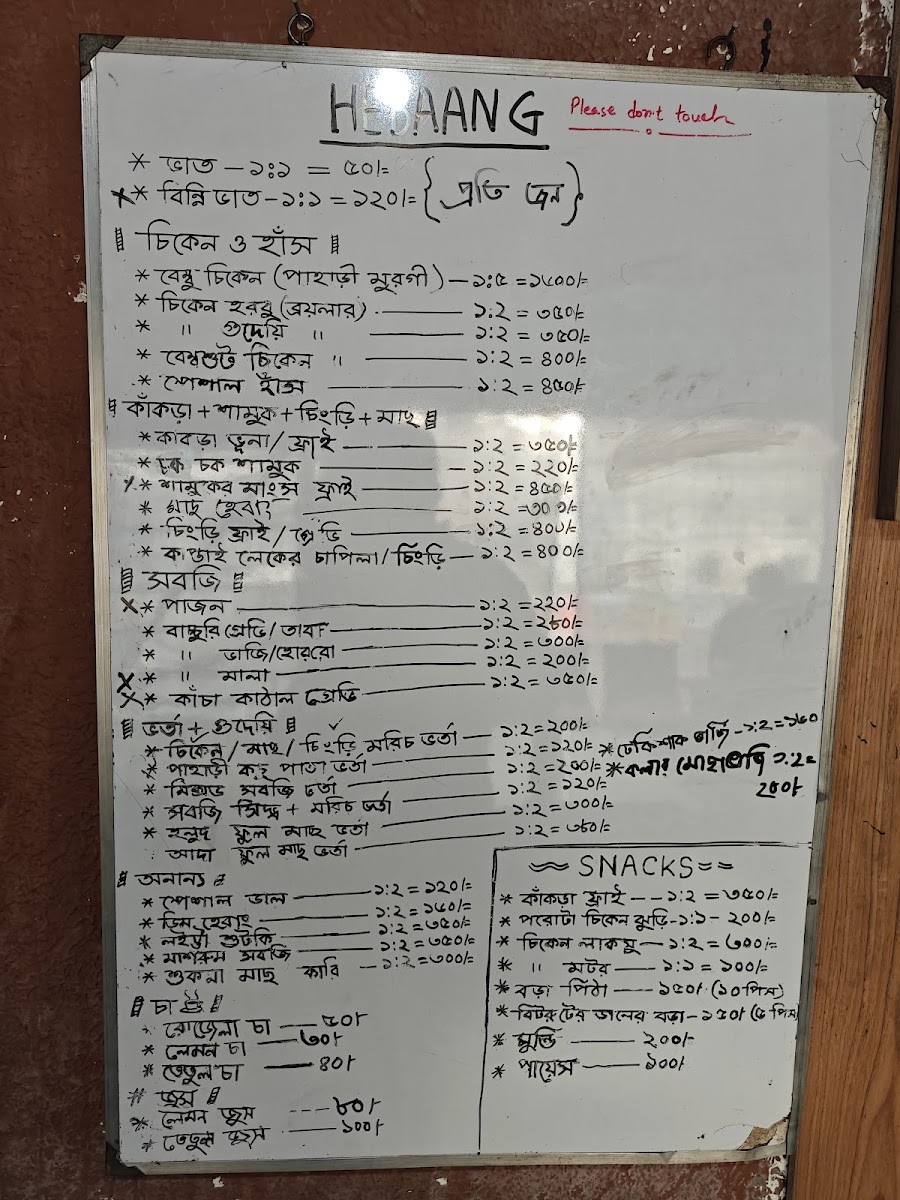 HEBAANG
Please don't touch
* ভাত - ১ঃ১ = ৫০/=
X* বিন্নি ভাত - ১ঃ১ = ১২০/= { প্রতি জন }
চিকেন ও হাঁস
* বেম্বু চিকেন (পাহাড়ী মুরগী) — ১ঃ৫ = ১৫০০/=
* চিকেন হরবু (ব্রয়লার) — ১:২ = ৩৫০/=
* " গুদেয়ি " — ১:২ = ৩৫০/=
* বেম্বশুট চিকেন " — ১:২ = ৪০০/=
* স্পেশাল হাঁস — ১:২ = ৪৫০/=
কাঁকড়া + শামুক + চিংড়ি + মাছ
* কাকড়া ভূনা / ফ্রাই — ১:২ = ৩৫০/=
* চক শামুক — ১:২ = ২২০/=
* শামুকের মাংস ফ্রাই — ১:২ = ৪৫০/=
* মাছ হেবাং — ১:২ = ৩০০/=
* চিংড়ি ফ্রাই / গ্রেভি — ১:২ = ৪০০/=
* কাপ্তাই লেকের চাপিলা / চিংড়ি — ১:২ = ৪০০/=
সবজি
X* পাজন — ১:২ = ২২০/=
* বাচ্চুরি গ্রেভি / তাবা — ১:২ = ২৮০/=
* " ভাজি / হোরবো — ১:২ = ৩০০/=
X* " মালা — ১:২ = ২০০/=
X* কাঁচা কাঠাল গ্রেভি — ১:২ = ৩৫০/=
ভর্তা + গুদেয়ি
* চিকেন / মাছ / চিংড়ি মরিচ ভর্তা — ১:২ = ২০০/=
* পাহাড়ী কচু পাতা ভর্তা — ১:২ = ১২০/=
* মিক্সড সবজি ভর্তা — ১:২ = ২০০/=
* সবজি সিদ্ধ + মরিচ ভর্তা — ১:২ = ১২০/=
* হলুদ ফুল মাছ ভর্তা — ১:২ = ৩০০/=
আদা ফুল মাছ ভর্তা — ১:২ = ৩৮০/=
* ঢেকিশাক ভাজি - ১:২ = ১৬০
* কলার মোচা ভাজি ১:২ =
২৫০/-
অনান্য
* স্পেশাল ডাল — ১:২ = ১২০/=
* ডিম হেবাং — ১:২ = ১৫০/=
* লইট্টা শুটকি — ১:২ = ৩৫০/=
* মাশরুম সবজি — ১:২ = ৩৫০/=
* শুকনা মাছ কারি — ১:২ = ৩০০/=
চা
* রোজেলা চা — ৫০/-
* লেমন চা — ৩০/-
* তেতুল চা — ৪০/-
জুস
* লেমন জুস --- ৮০/-
* তেতুল জুস — ১০০/-
SNACKS
* কাঁকড়া ফ্রাই -- ১:২ = ৩৫০/=
* পরোটা চিকেন ঝুড়ি - ১:১ - ২০০/=
* চিকেন লাকসু — ১:২ = ৩০০/=
* " মটর — ১:১ = ১০০/=
* বড়া পিঠা — ১৫০/- (১০ পিস)
* বিটরুটের ডালের বড়া - ১৫০/- (৫ পিস)
* মুন্ডি — ২০০/-
* পায়েস — ১০০/-